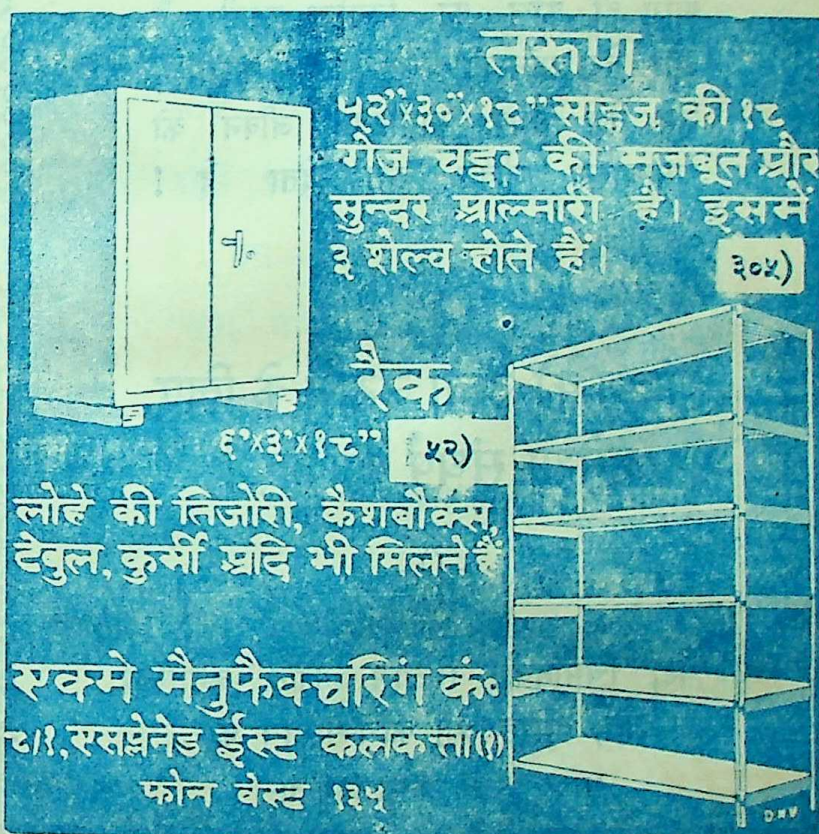 तरुण
५२"x३०"x१८" साइज की १८
गेज चद्दर की मजबूत और
सुन्दर आल्मारी है। इसमें
३ शेल्व होते हैं।
३०५)
रैक
६'x३'x१८" ५२)
लोहे की तिजोरी, कैशबौक्स,
टेबुल, कुर्सी अदि भी मिलते हैं
एक्मे मैनुफैक्चरिंग कं०
८/१, एसप्लेनेड ईस्ट कलकत्ता(१)
फोन वेस्ट १३५
D.N.V